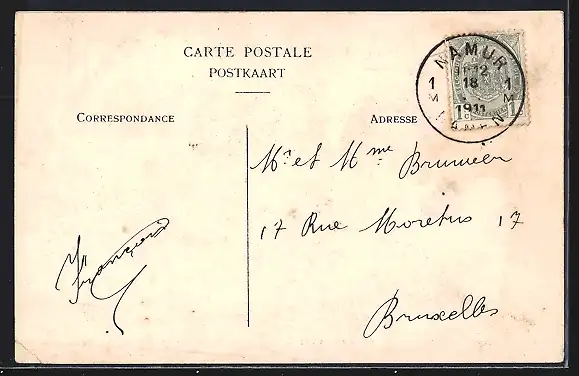 CARTE POSTALE
POSTKAART
CORRESPONDANCE
ADRESSE
NAMUR
12
18
1 1
M M
1911
NAMEN
1 c 1
Mr et Mme Brunueer
17 Rue Moretus 17
Bruxelles
François